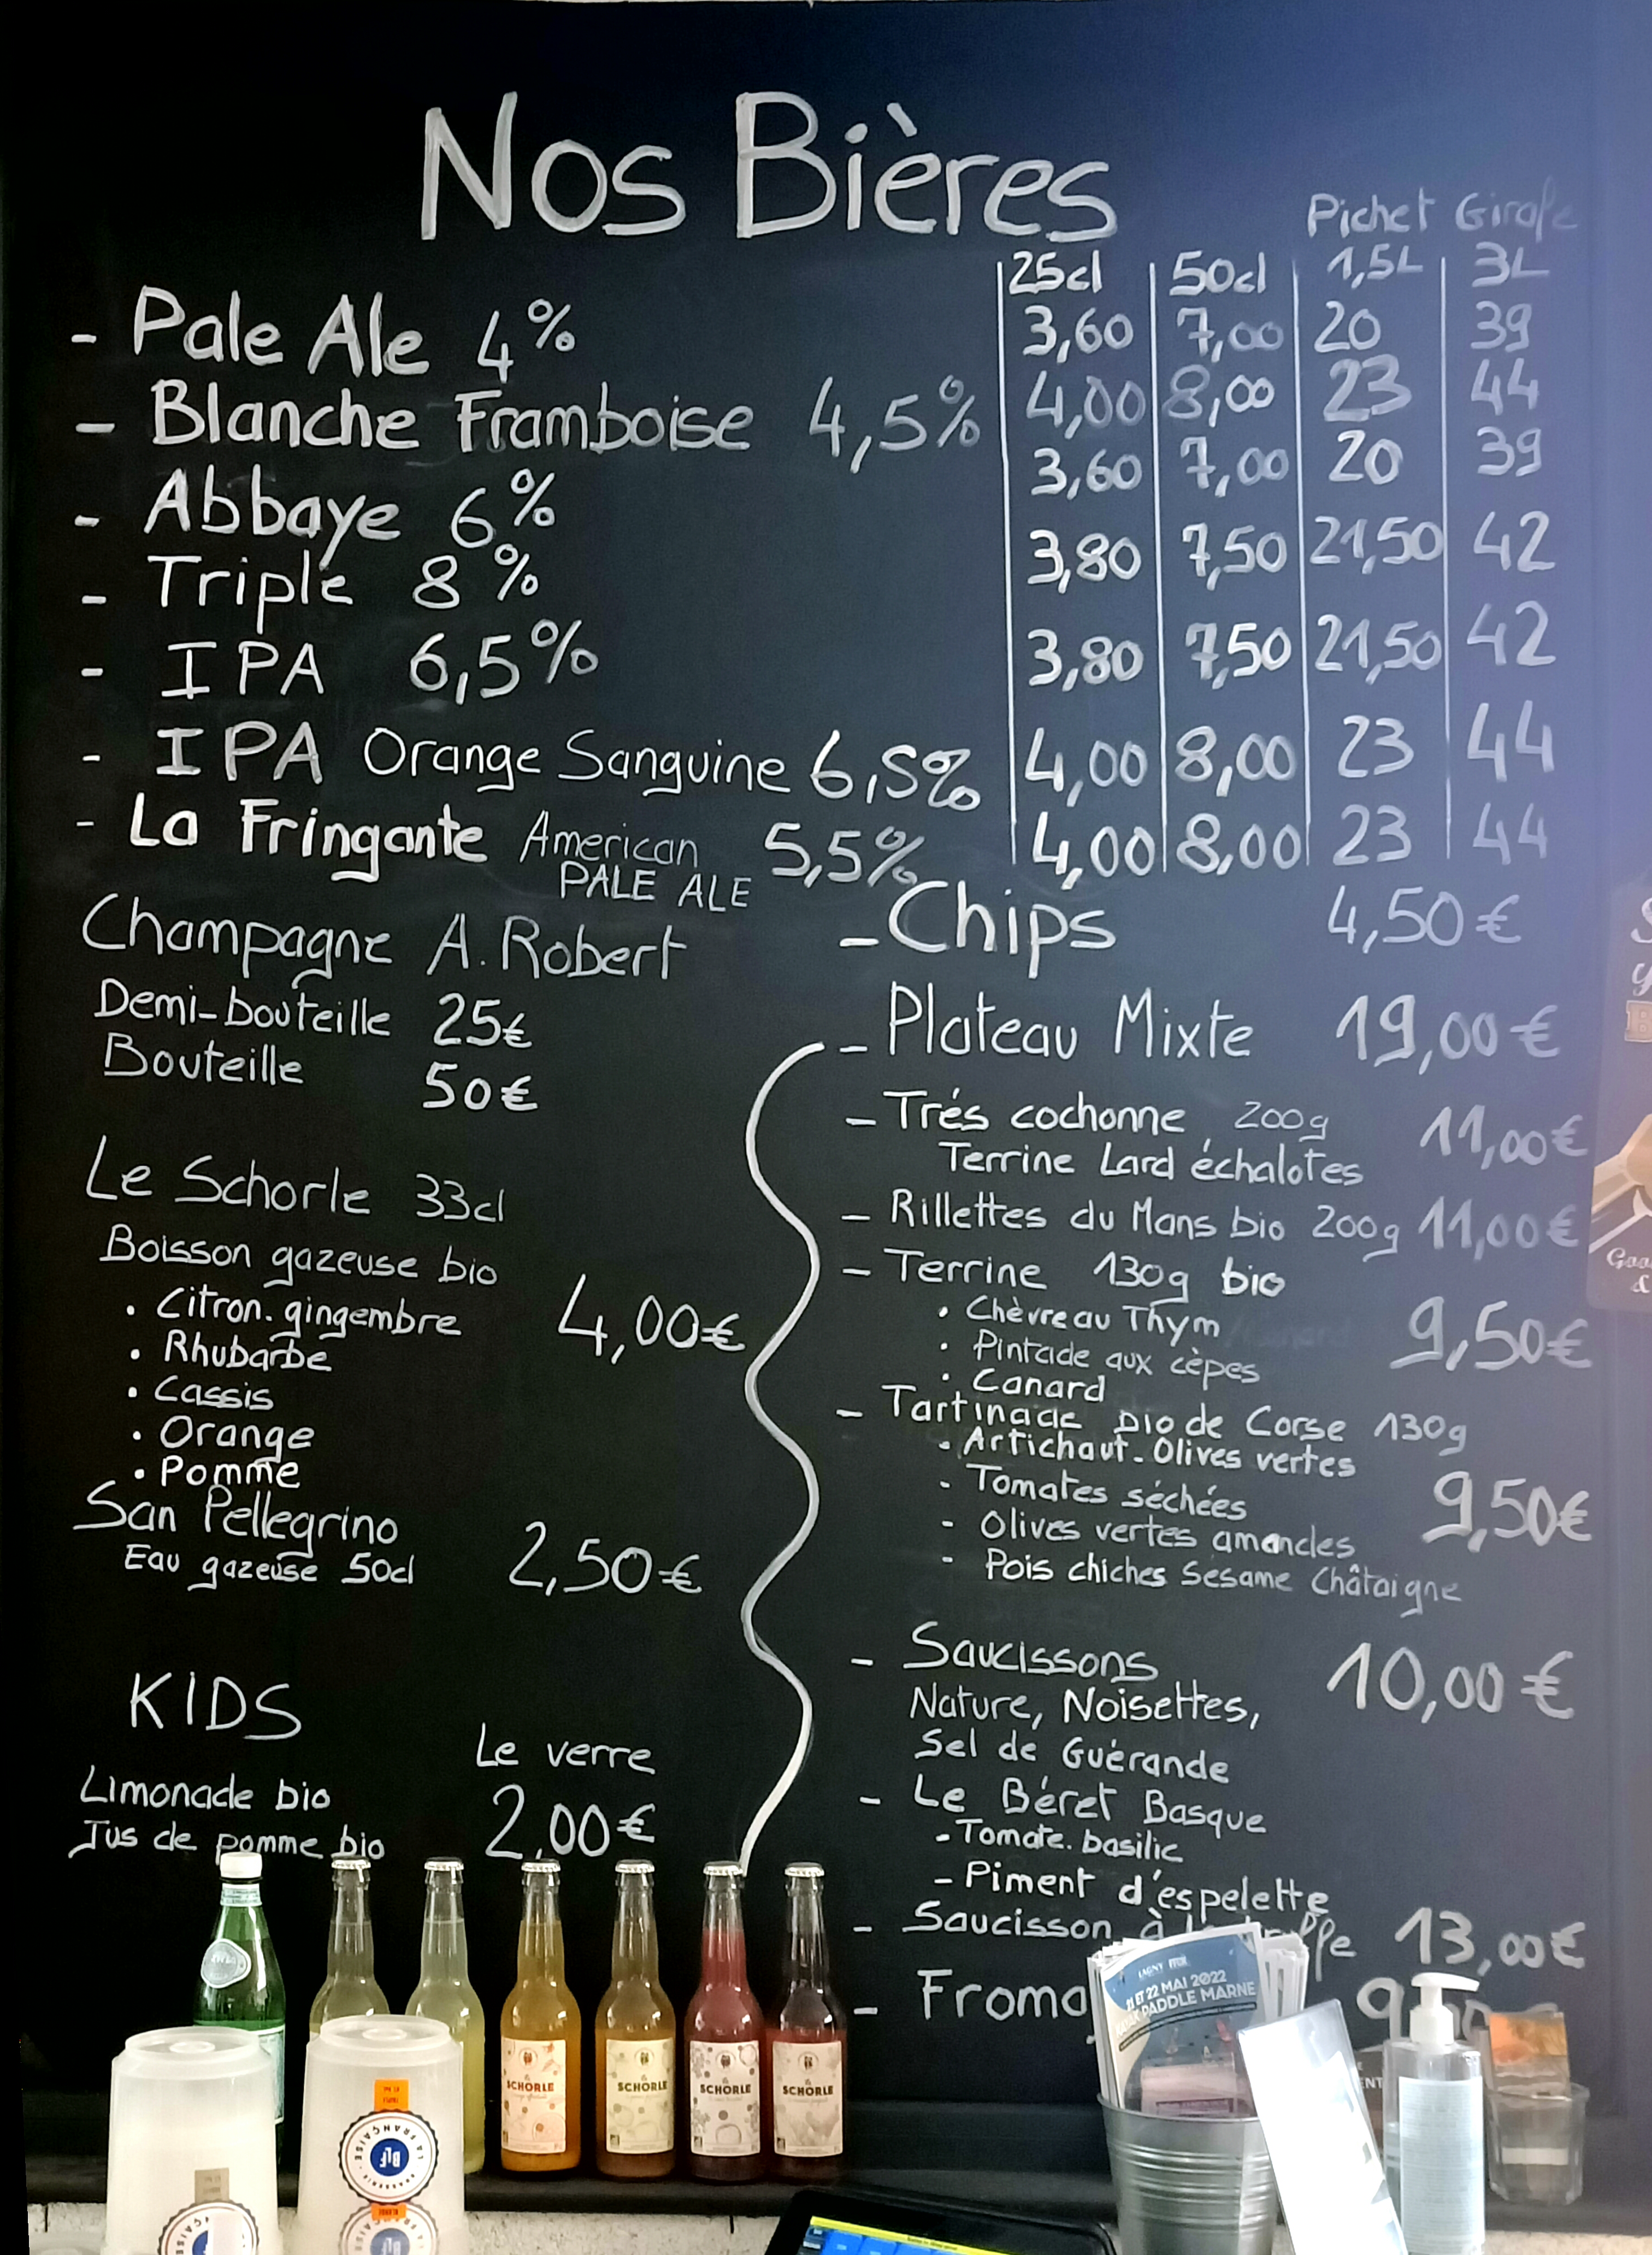 Nos Bières
Pichet Girafe
25cl 50cl 1,5L 3L
- Pale Ale 4% 3,60 7,00 20 39
- Blanche Framboise 4,5% 4,00 8,00 23 44
- Abbaye 6% 3,60 7,00 20 39
- Triple 8% 3,80 7,50 21,50 42
- IPA 6,5% 3,80 7,50 21,50 42
- IPA Orange Sanguine 6,5% 4,00 8,00 23 44
- La Fringante American 5,5% 4,00 8,00 23 44
PALE ALE
Champagne A. Robert
Demi-bouteille 25€
Bouteille 50€
Le Schorle 33cl
Boisson gazeuse bio
• Citron. gingembre 4,00€
• Rhubarbe
• Cassis
• Orange
• Pomme
San Pellegrino
Eau gazeuse 50cl 2,50€
KIDS
Le verre
Limonade bio
Jus de pomme bio 2,00€
- Chips 4,50€
- Plateau Mixte 19,00€
- Trés cochonne 200g 11,00€
Terrine Lard échalotes
- Rillettes du Mans bio 200g 11,00€
- Terrine 130g bio
• Chèvreau Thym 9,50€
• Pintade aux cèpes
• Canard
- Tartinade bio de Corse 130g
• Artichaut. Olives vertes
- Tomates séchées 9,50€
- Olives vertes amandes
- Pois chiches Sésame Châtaigne
- Saucissons 10,00€
Nature, Noisettes,
Sel de Guérande
- Le Béret Basque
- Tomate. basilic
- Piment d'espelette
- Saucisson à 13,00€
-
LAGNY
21 ET 22 MAI 2022
PADDLE MARNE
SCHORLE
SCHORLE
SCHORLE
SCHORLE
LA FRANÇAISE
BLF